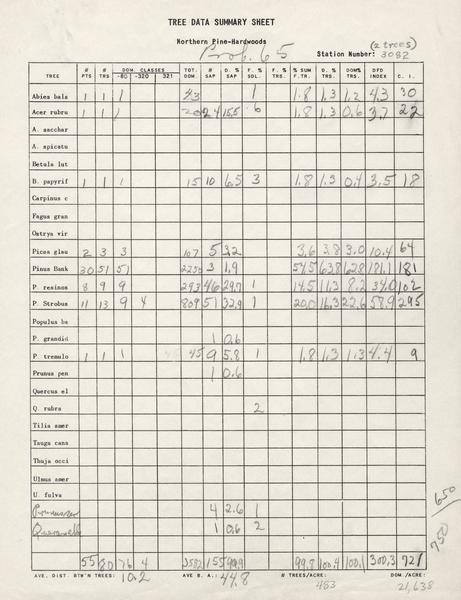 TREE DATA SUMMARY SHEET
Northern Pine-Hardwoods
Prof. 65 (2 trees)
Station Number: 3082
TREE # PTS # TRS DOM. CLASSES -80 -320 321 TOT. DOM. # SAP D. % SAP F. % SDL. F. % TRS. % SUM F. TR. D. % TRS. DOM% TRS. DFD INDEX C. I.
Abies bals 1 1 1 43 1 1.8 1.3 1.2 4.3 30
Acer rubru 1 1 1 20 24 15.5 6 1.8 1.3 0.6 3.7 22
A. sacchar
A. spicatu
Betula lut
B. papyrif 1 1 1 15 10 6.5 3 1.8 1.3 0.4 3.5 18
Carpinus c
Fagus gran
Ostrya vir
Picea glau 2 3 3 107 5 3.2 3.6 3.8 3.0 10.4 64
Pinus Bank 30 51 51 2250 3 1.9 54.5 63.8 62.8 181.1 181
P. resinos 8 9 9 293 46 29.7 1 14.5 11.3 8.2 34.0 102
P. Strobus 11 13 9 4 809 51 32.9 1 20.0 16.3 22.6 58.9 295
Populus ba
P. grandid 1 0.6
P. tremulo 1 1 1 45 9 5.8 1 1.8 1.3 1.3 4.4 9
Prunus pen 1 0.6
Quercus el
Q. rubra 2
Tilia amer
Tsuga cana
Thuja occi
Ulmus amer
U. fulva
4 2.6 1
1 0.6 2
650
750
55 80 76 4 3582 155 99.9 99.8 100.4 100.1 300.3 721
AVE. DIST. BTW'N TREES: 10.2 AVE B. A.: 44.8 # TREES/ACRE: 483 DOM./ACRE: 21,638